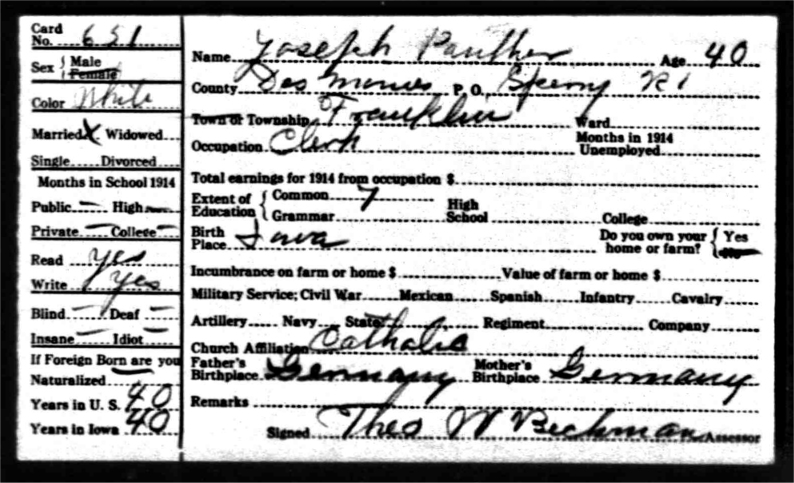 Card No. 651
Sex { Male Female
Color White
Married X Widowed
Single Divorced
Months in School 1914
Public — High —
Private — College —
Read yes
Write yes
Blind — Deaf —
Insane — Idiot —
If Foreign Born are you
Naturalized
Years in U. S. 40
Years in Iowa 40
Name Joseph Panther Age 40
County Des Moines P. O. Sperry R1
Town or Township Franklin Ward
Occupation Clerk Months in 1914 Unemployed
Total earnings for 1914 from occupation $
Extent of Education { Common 7 Grammar High School College
Birth Place Iowa Do you own your home or farm? { Yes No
Incumbrance on farm or home $ Value of farm or home $
Military Service; Civil War Mexican Spanish Infantry Cavalry
Artillery Navy State Regiment Company
Church Affiliation Catholic
Father's Birthplace Germany Mother's Birthplace Germany
Remarks
Signed Theo W Beckman Assessor